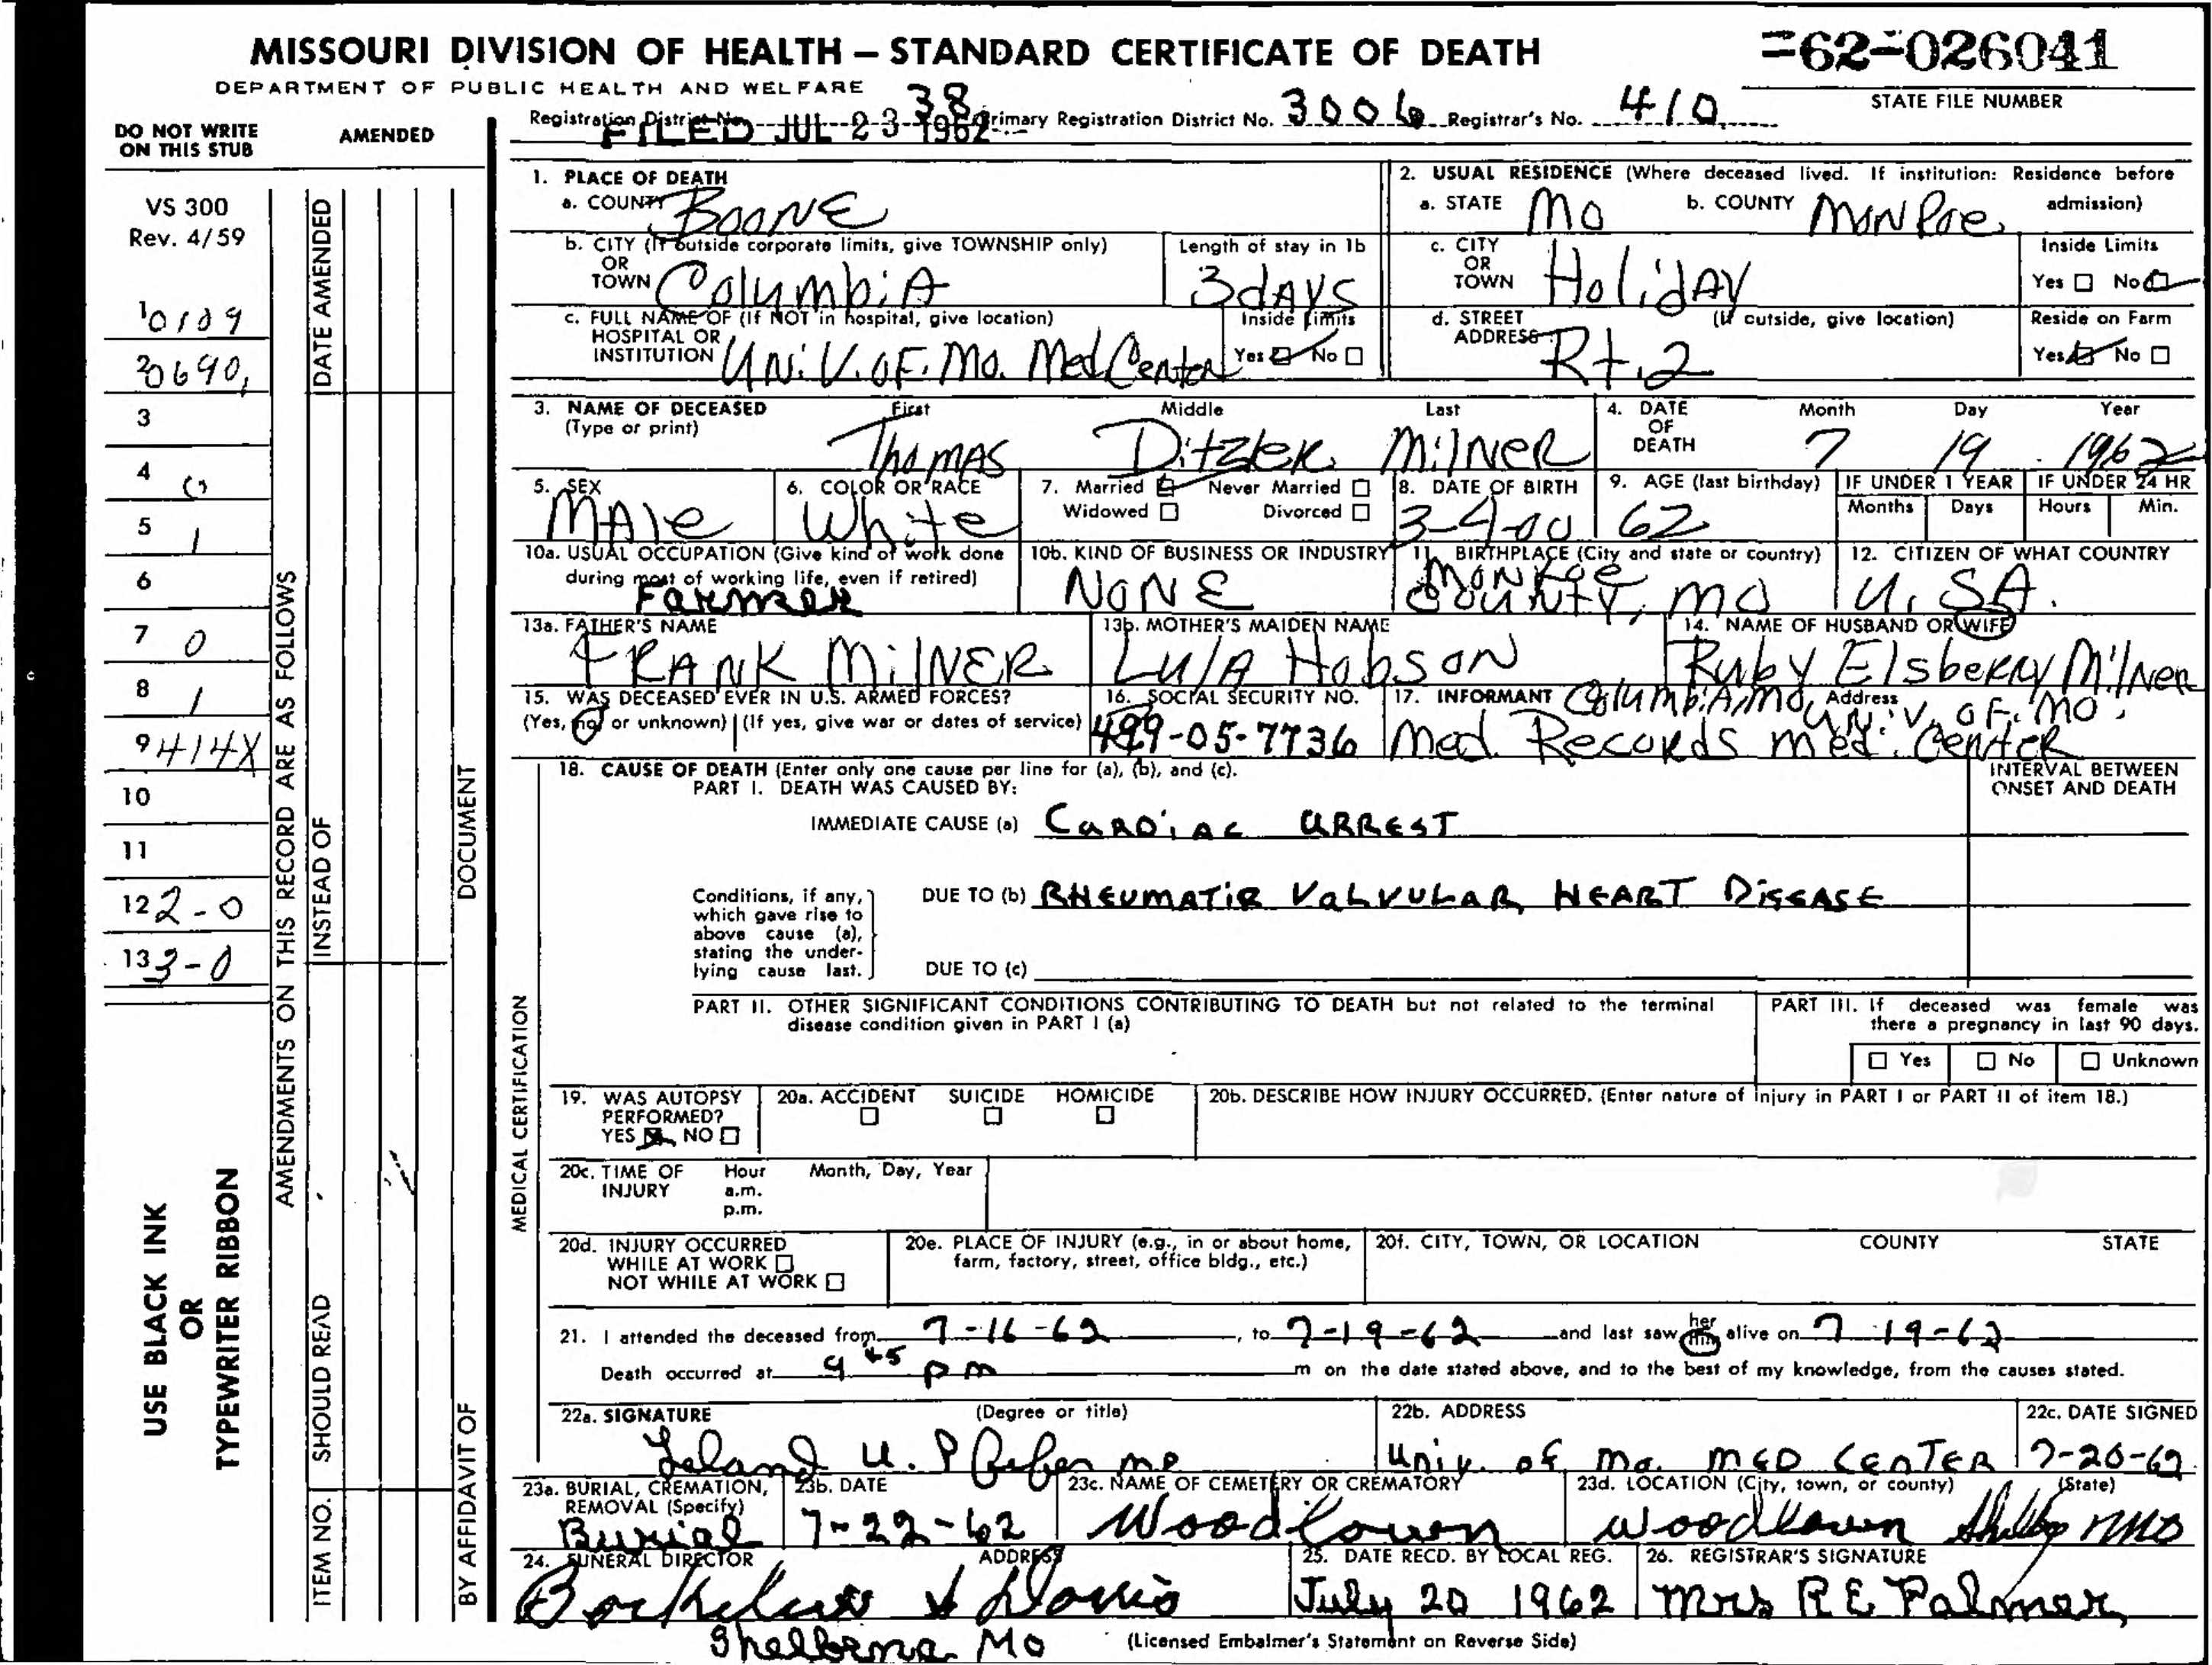 MISSOURI DIVISION OF HEALTH — STANDARD CERTIFICATE OF DEATH
=62-026041
DEPARTMENT OF PUBLIC HEALTH AND WELFARE
STATE FILE NUMBER
Registration District No. 38 Primary Registration District No. 3006 Registrar's No. 410
FILED JUL 23 1962
DO NOT WRITE ON THIS STUB
AMENDED
VS 300
Rev. 4/59
1 0109
2 0690,
3
4 0
5 1
6
7 0
8 1
9 414X
10
11
12 2-0
13 3-0
USE BLACK INK
OR
TYPEWRITER RIBBON
AMENDMENTS ON THIS RECORD ARE AS FOLLOWS
DATE AMENDED
INSTEAD OF
SHOULD READ
ITEM NO.
DOCUMENT
BY AFFIDAVIT OF
MEDICAL CERTIFICATION
1. PLACE OF DEATH
a. COUNTY BOONE
2. USUAL RESIDENCE (Where deceased lived. If institution: Residence before admission)
a. STATE MO b. COUNTY MONROE
b. CITY (If outside corporate limits, give TOWNSHIP only) OR TOWN ColumbiA
Length of stay in 1b 3 dAYS
c. CITY OR TOWN HoliDAY
Inside Limits Yes No
c. FULL NAME OF (If NOT in hospital, give location) HOSPITAL OR INSTITUTION UNiV. OF. MO. Med Center
Inside Limits Yes No
d. STREET ADDRESS (If outside, give location) Rt. 2
Reside on Farm Yes No
3. NAME OF DECEASED (Type or print)
First Middle Last
ThomAS DitzleR MilNeR
4. DATE OF DEATH Month Day Year
7 19 1962
5. SEX MAle
6. COLOR OR RACE White
7. Married Never Married Widowed Divorced
8. DATE OF BIRTH 3-4-00
9. AGE (last birthday) 62
IF UNDER 1 YEAR Months Days
IF UNDER 24 HR Hours Min.
10a. USUAL OCCUPATION (Give kind of work done during most of working life, even if retired) Farmer
10b. KIND OF BUSINESS OR INDUSTRY NONE
11. BIRTHPLACE (City and state or country) MONROE COUNTY, MO
12. CITIZEN OF WHAT COUNTRY U.SA.
13a. FATHER'S NAME FRANK MilNER
13b. MOTHER'S MAIDEN NAME LulA HobsoN
14. NAME OF HUSBAND OR WIFE Ruby ElsbeRRy MilNeR
15. WAS DECEASED EVER IN U.S. ARMED FORCES?
(Yes, no, or unknown) (If yes, give war or dates of service)
16. SOCIAL SECURITY NO. 499-05-7736
17. INFORMANT Address ColumbiA, Mo, UNiV. OF. MO.
Med. Records Med. CenteR
18. CAUSE OF DEATH (Enter only one cause per line for (a), (b), and (c).
PART I. DEATH WAS CAUSED BY:
INTERVAL BETWEEN ONSET AND DEATH
IMMEDIATE CAUSE (a) CARDiAC ARREST
Conditions, if any, which gave rise to above cause (a), stating the underlying cause last.
DUE TO (b) RHEUMATIC VALVULAR HEART DISEASE
DUE TO (c)
PART II. OTHER SIGNIFICANT CONDITIONS CONTRIBUTING TO DEATH but not related to the terminal disease condition given in PART I (a)
PART III. If deceased was female was there a pregnancy in last 90 days.
Yes No Unknown
19. WAS AUTOPSY PERFORMED? YES NO
20a. ACCIDENT SUICIDE HOMICIDE
20b. DESCRIBE HOW INJURY OCCURRED. (Enter nature of injury in PART I or PART II of item 18.)
20c. TIME OF INJURY Hour a.m. p.m. Month, Day, Year
20d. INJURY OCCURRED WHILE AT WORK NOT WHILE AT WORK
20e. PLACE OF INJURY (e.g., in or about home, farm, factory, street, office bldg., etc.)
20f. CITY, TOWN, OR LOCATION COUNTY STATE
21. I attended the deceased from 7-16-62, to 7-19-62 and last saw her him alive on 7-19-62
Death occurred at 9 45 pm m on the date stated above, and to the best of my knowledge, from the causes stated.
22a. SIGNATURE (Degree or title) Leland U. MD
22b. ADDRESS Univ. of Mo. MED CENTER
22c. DATE SIGNED 7-20-62
23a. BURIAL, CREMATION, REMOVAL (Specify) Burial
23b. DATE 7-22-62
23c. NAME OF CEMETERY OR CREMATORY Woodlawn
23d. LOCATION (City, town, or county) (State) Woodlawn Shelby MO
24. FUNERAL DIRECTOR ADDRESS
& Davis
Shelbina MO
25. DATE RECD. BY LOCAL REG. July 20 1962
26. REGISTRAR'S SIGNATURE Mrs R E Palmer
(Licensed Embalmer's Statement on Reverse Side)